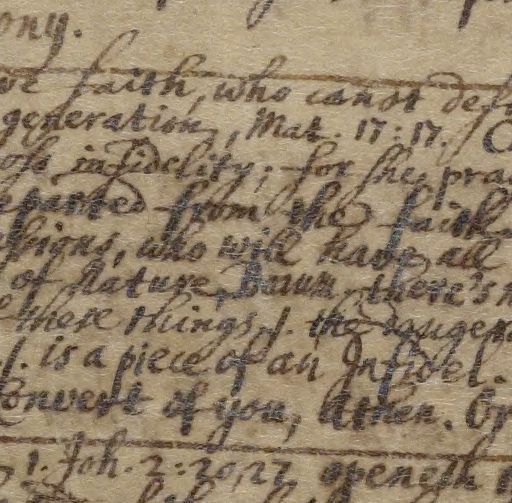 ony.
ve faith, who canot def
generation, Mat. 17:17. O
ose infidelity; for she pra
eparted from the faith
shions, who will have all
of Nature, there's n
these things, /. the dangero
/. is a piece of an Infidel.
Convert of you, Athen. Or
1. Joh. 2:20,27 openeth